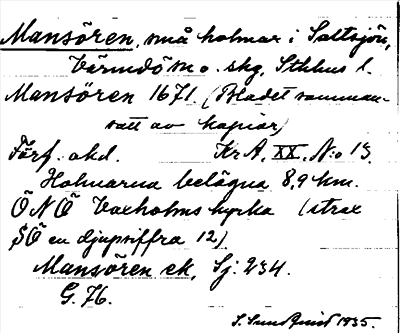 Mansören, små holmar i Saltsjön,
Värmdö sn o. skg, Sthlms l.
Mansören 1671. (Bladet samman-
satt av kopior)
Förf. okd. KrA, XX, N:o 13.
Holmarna belägna 8,9 km.
ÖNÖ Vaxholms kyrka (strax
SÖ en djupsiffra 12).
Mansören ek, Sj. 234.
G. 76.
S. Sundquist 1935.